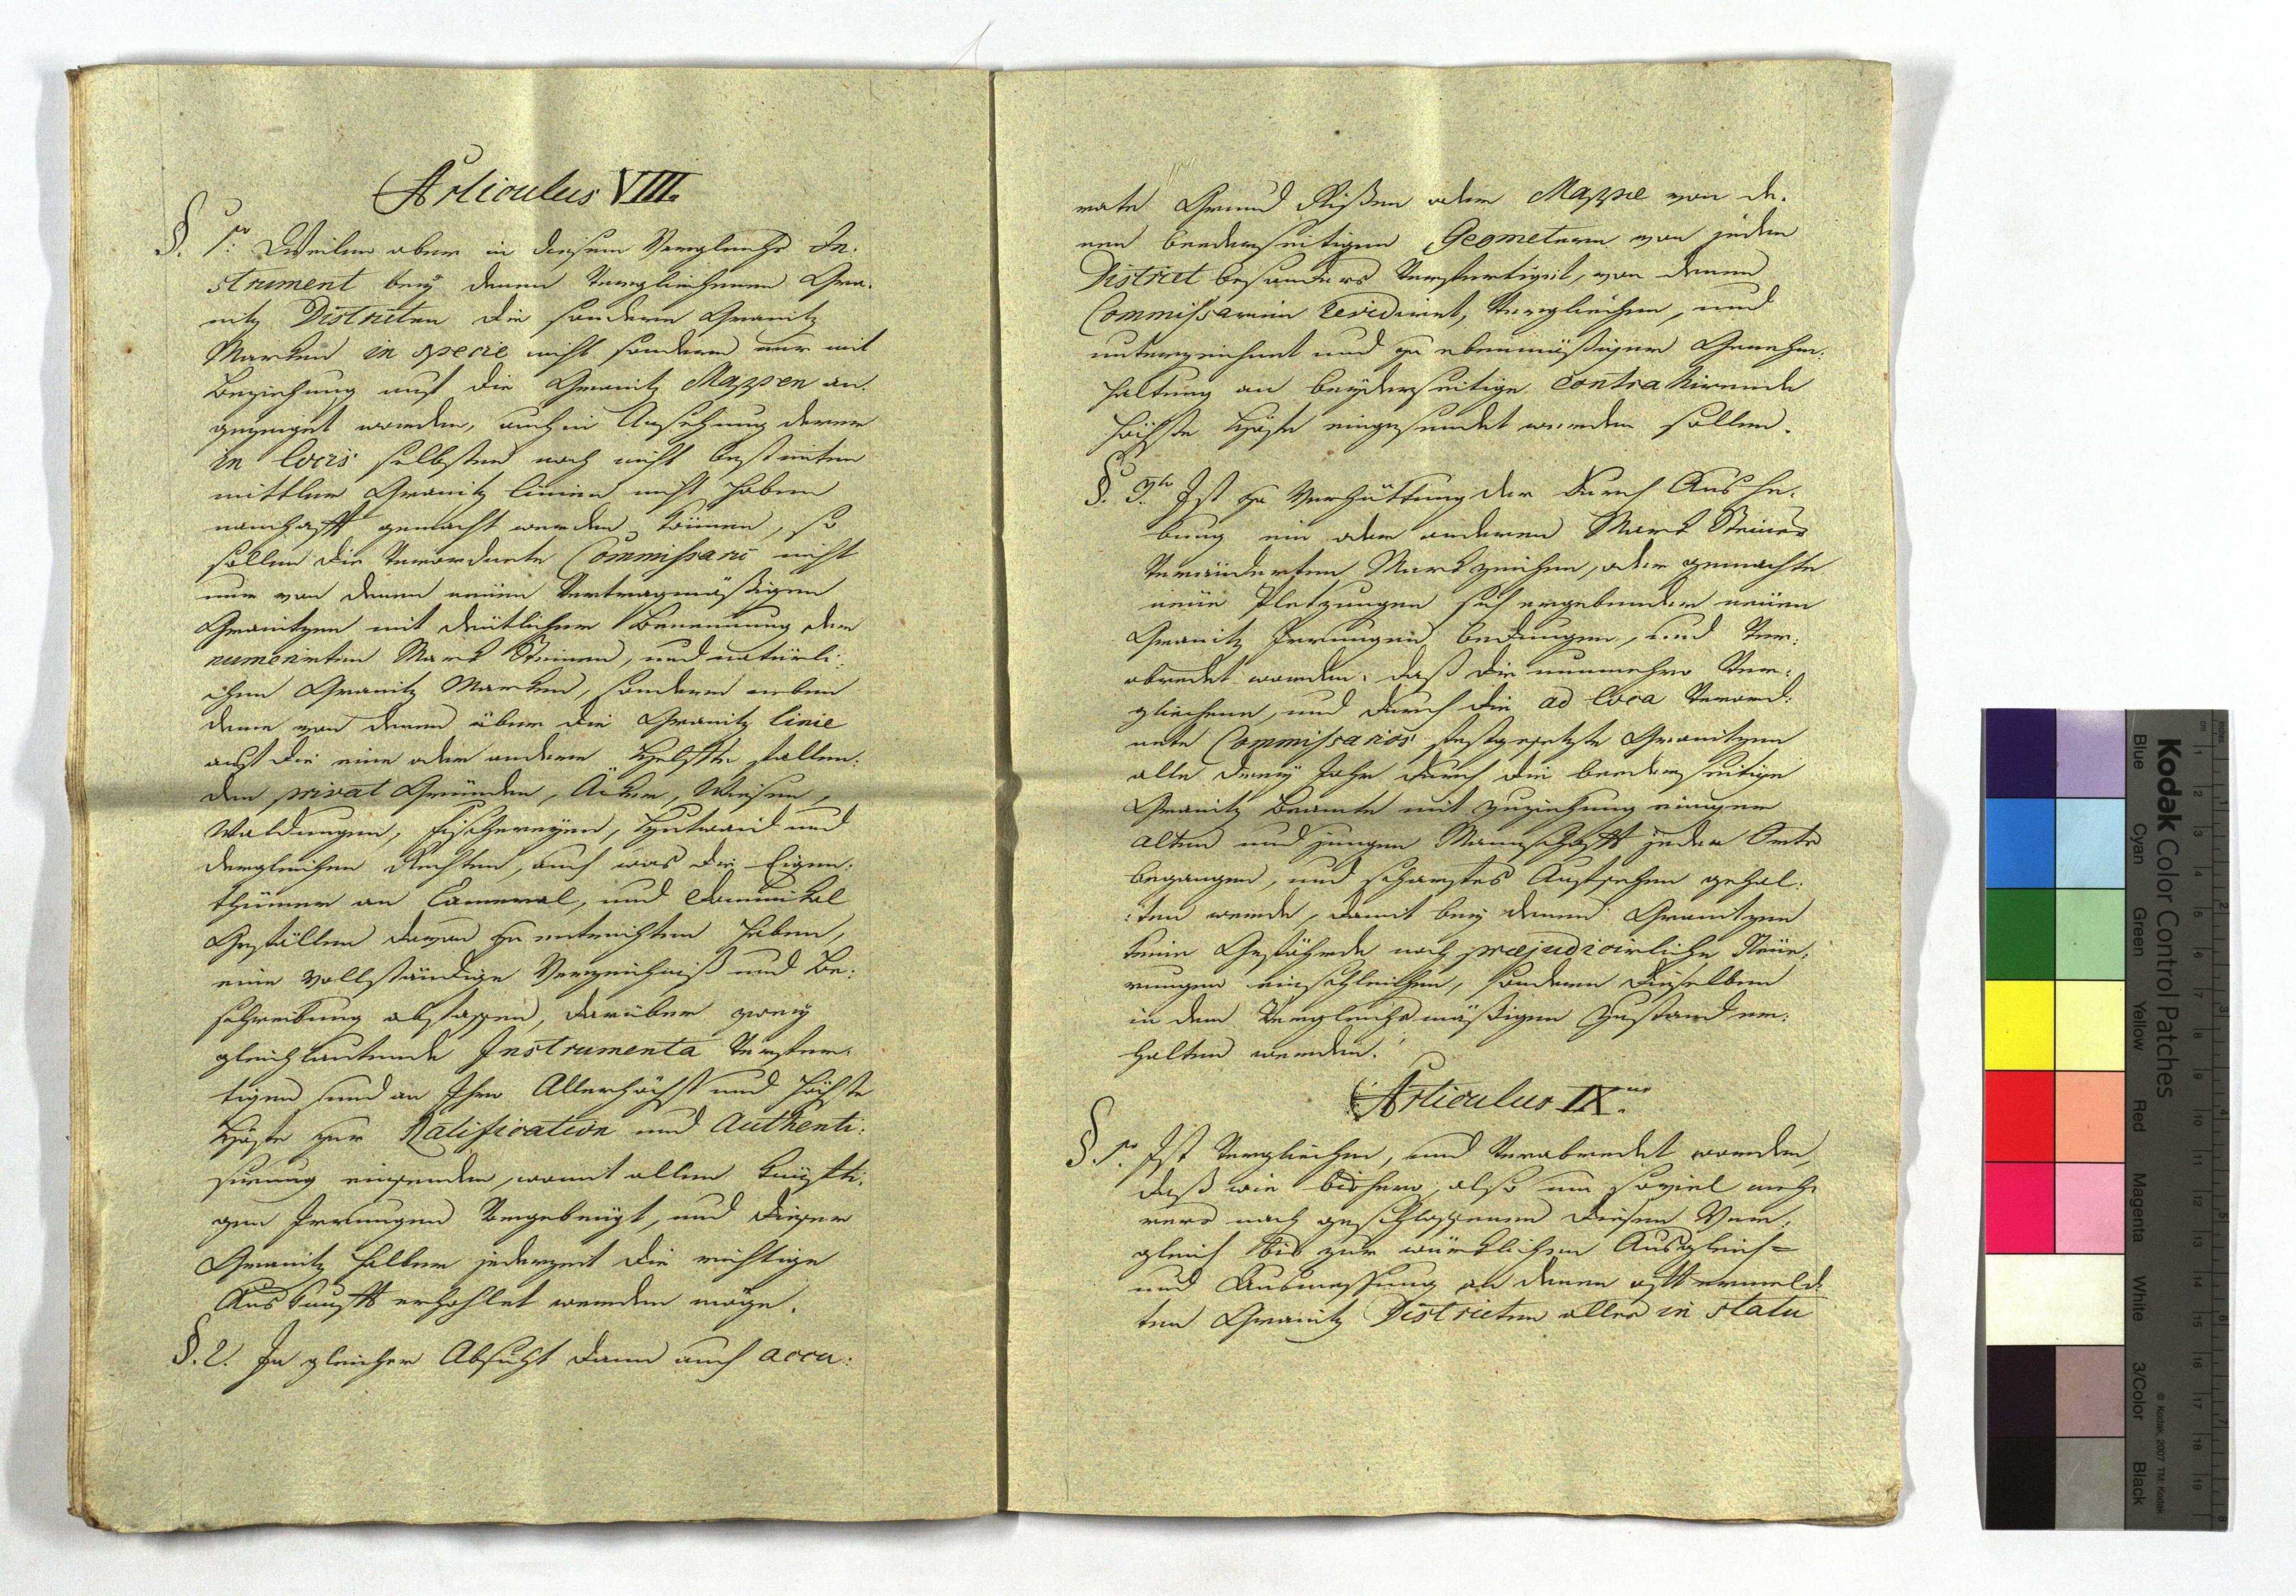 Articulus VIII.
§. 1mo Weilen aber in diesem Vergleichs In-
strument bey denen verglichenen Gra-
nitz Districten die sondern Granitz
Marken in specie nicht sondern nur mit
Beziehung auf die Granitz Mappen an-
gezeiget worden, auch in Ansehung deren
in locis selbsten noch nicht bestimten
mittlern Granitz linien nicht haben
namhafft gemacht werden können, so
sollen die verordnete Commissarii nicht
nur von denen neüen Vertragmäßigen
Granitzen mit deutlicher Benennung der
numerirten Mark Steinen, und natürli-
chen Granitz Marken, sondern neben
deme von denen über die Granitz linie
auf die eine oder andere Helffte fallen-
den privat Gründen, Äcker, Wiesen,
Waldungen, Fischereyen, Hutwaid und
dergleichen Rechten, auch was die Eigen-
thümer an Cameral, und Dominical
Gefällen davon zu entrichten haben,
eine vollständige Verzeichniß und Be-
schreibung abfassen, darüber zwey
gleichlautende Instrumenta verfer-
tigen und an Ihro Allerhöchst und höchste
Höfe zur Ratification und Authenti-
sirung einsenden, womit allen künffti-
gen Irrungen vorgebeügt, und dieser
Granitz halber jederzeit die richtige
Auskunfft erhohlet werden möge.
§. 2. In gleicher Absicht dann auch accu-
rate Grund Rißen oder Mappe von de-
nen beederseitigen Geometern von jeden
District besonders verfertiget, von denen
Commissarien revidirt, verglichen, und
unterzeichnet und zu ebenmäßiger Genehm-
haltung an beyderseitige Contrahirende
höchste Höfe eingesendet werden sollen.
§. 3tio Ist zu Verhüttung der durch Aushe-
bung ein oder anderen Mark Steines
veränderten Markzeichen, oder gemachte
neüe Pletzungen sich ergebenden neüen
Granitz Irrungen bedungen, und ver-
abredet worden: daß die nunmehro ver-
glichene, und durch die ad loca verord-
nete Commissarios festgesetzte Granitzen
alle drey Jahr durch die beederseitige
Granitz Beamte mit zuziehung einiger
alten und jungen Mannschafft jeden Orts
begangen, und scharfes Aufsehen gehal-
ten werde, damit bey denen Granitzen
keine Gefährde noch præjudicirliche Neüe-
rungen einschleichen, sondern dieselben
in dem Vergleichs mäßigen Zustand er-
halten werden.
Articulus IXnus
§. 1mo Ist verglichen, und verabredet worden,
daß wie bishero, also um soviel meh-
rers nach geschlossenem diesen Ver-
gleich bis zur würklichen Ausgleich-
und Ausmessung an denen offtermeld-
ten Granitz Districten alles in statu